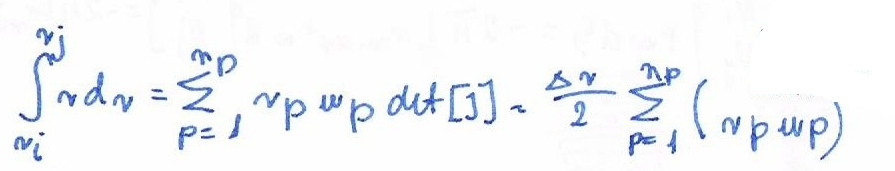 ∫_{r_i}^{r_j} r dr = ∑_{p=1}^{n_p} r_p w_p det [J] = Δr/2 ∑_{p=1}^{n_p} (r_p w_p)